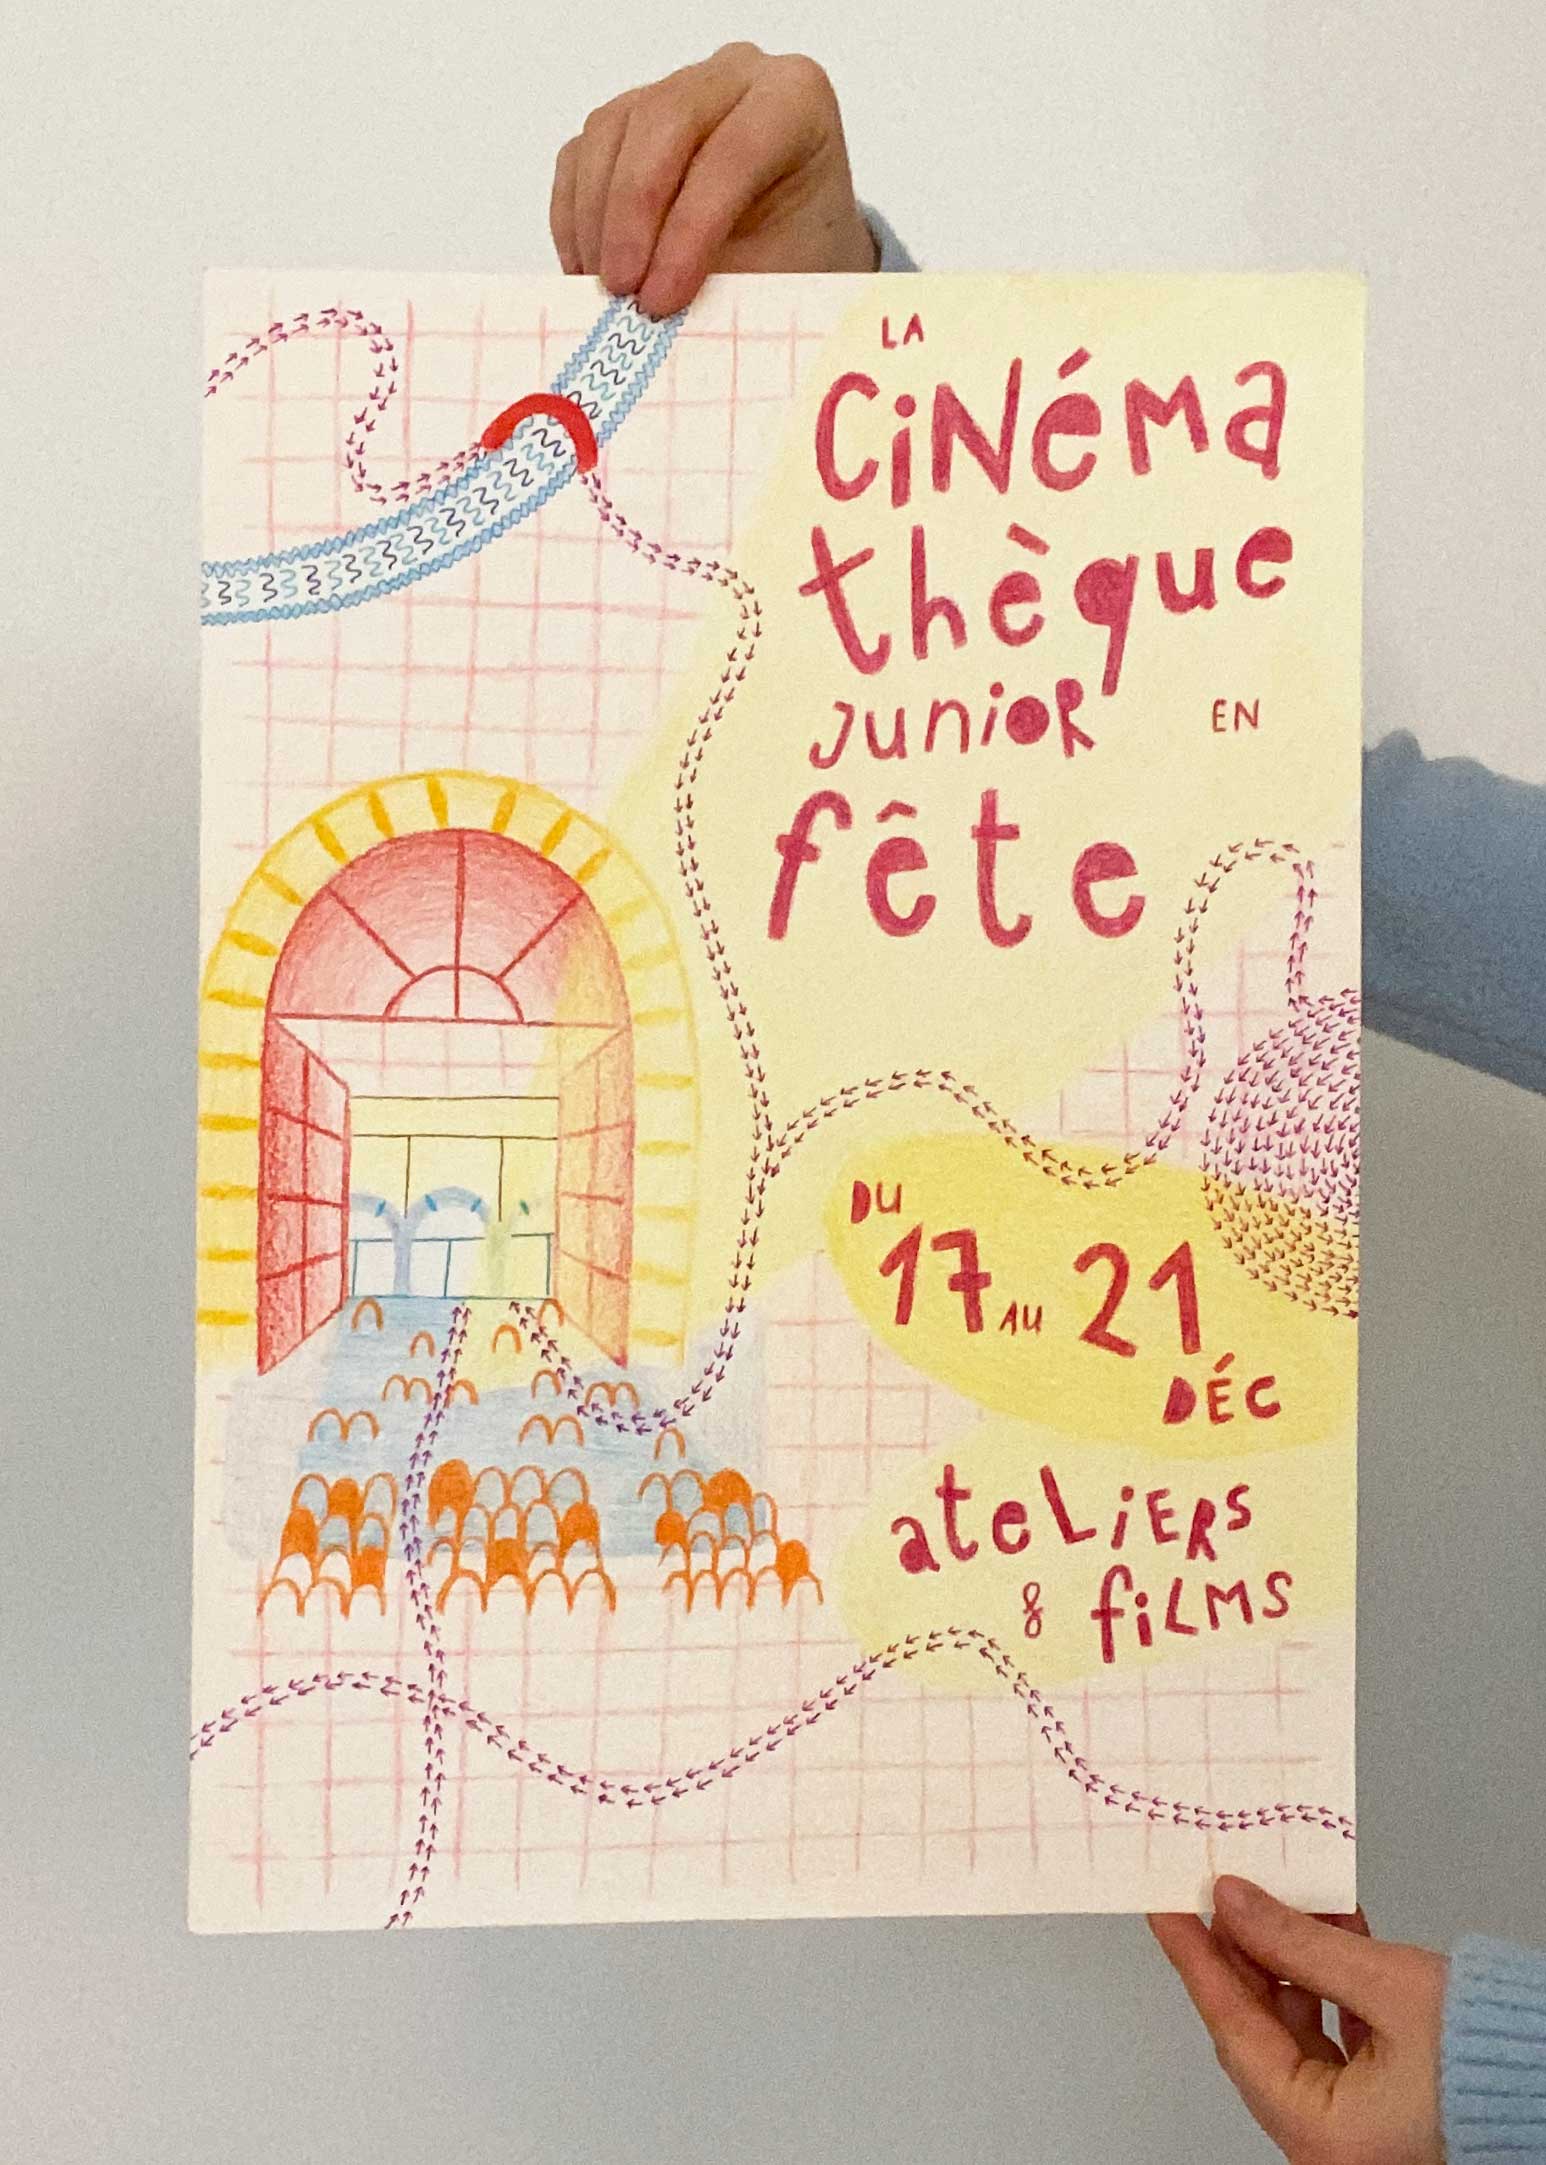 LA
CiNéMa
thèque
JUNiOR EN
fête
DU
17 AU 21
DÉC
ateLiERS
& fiLMS